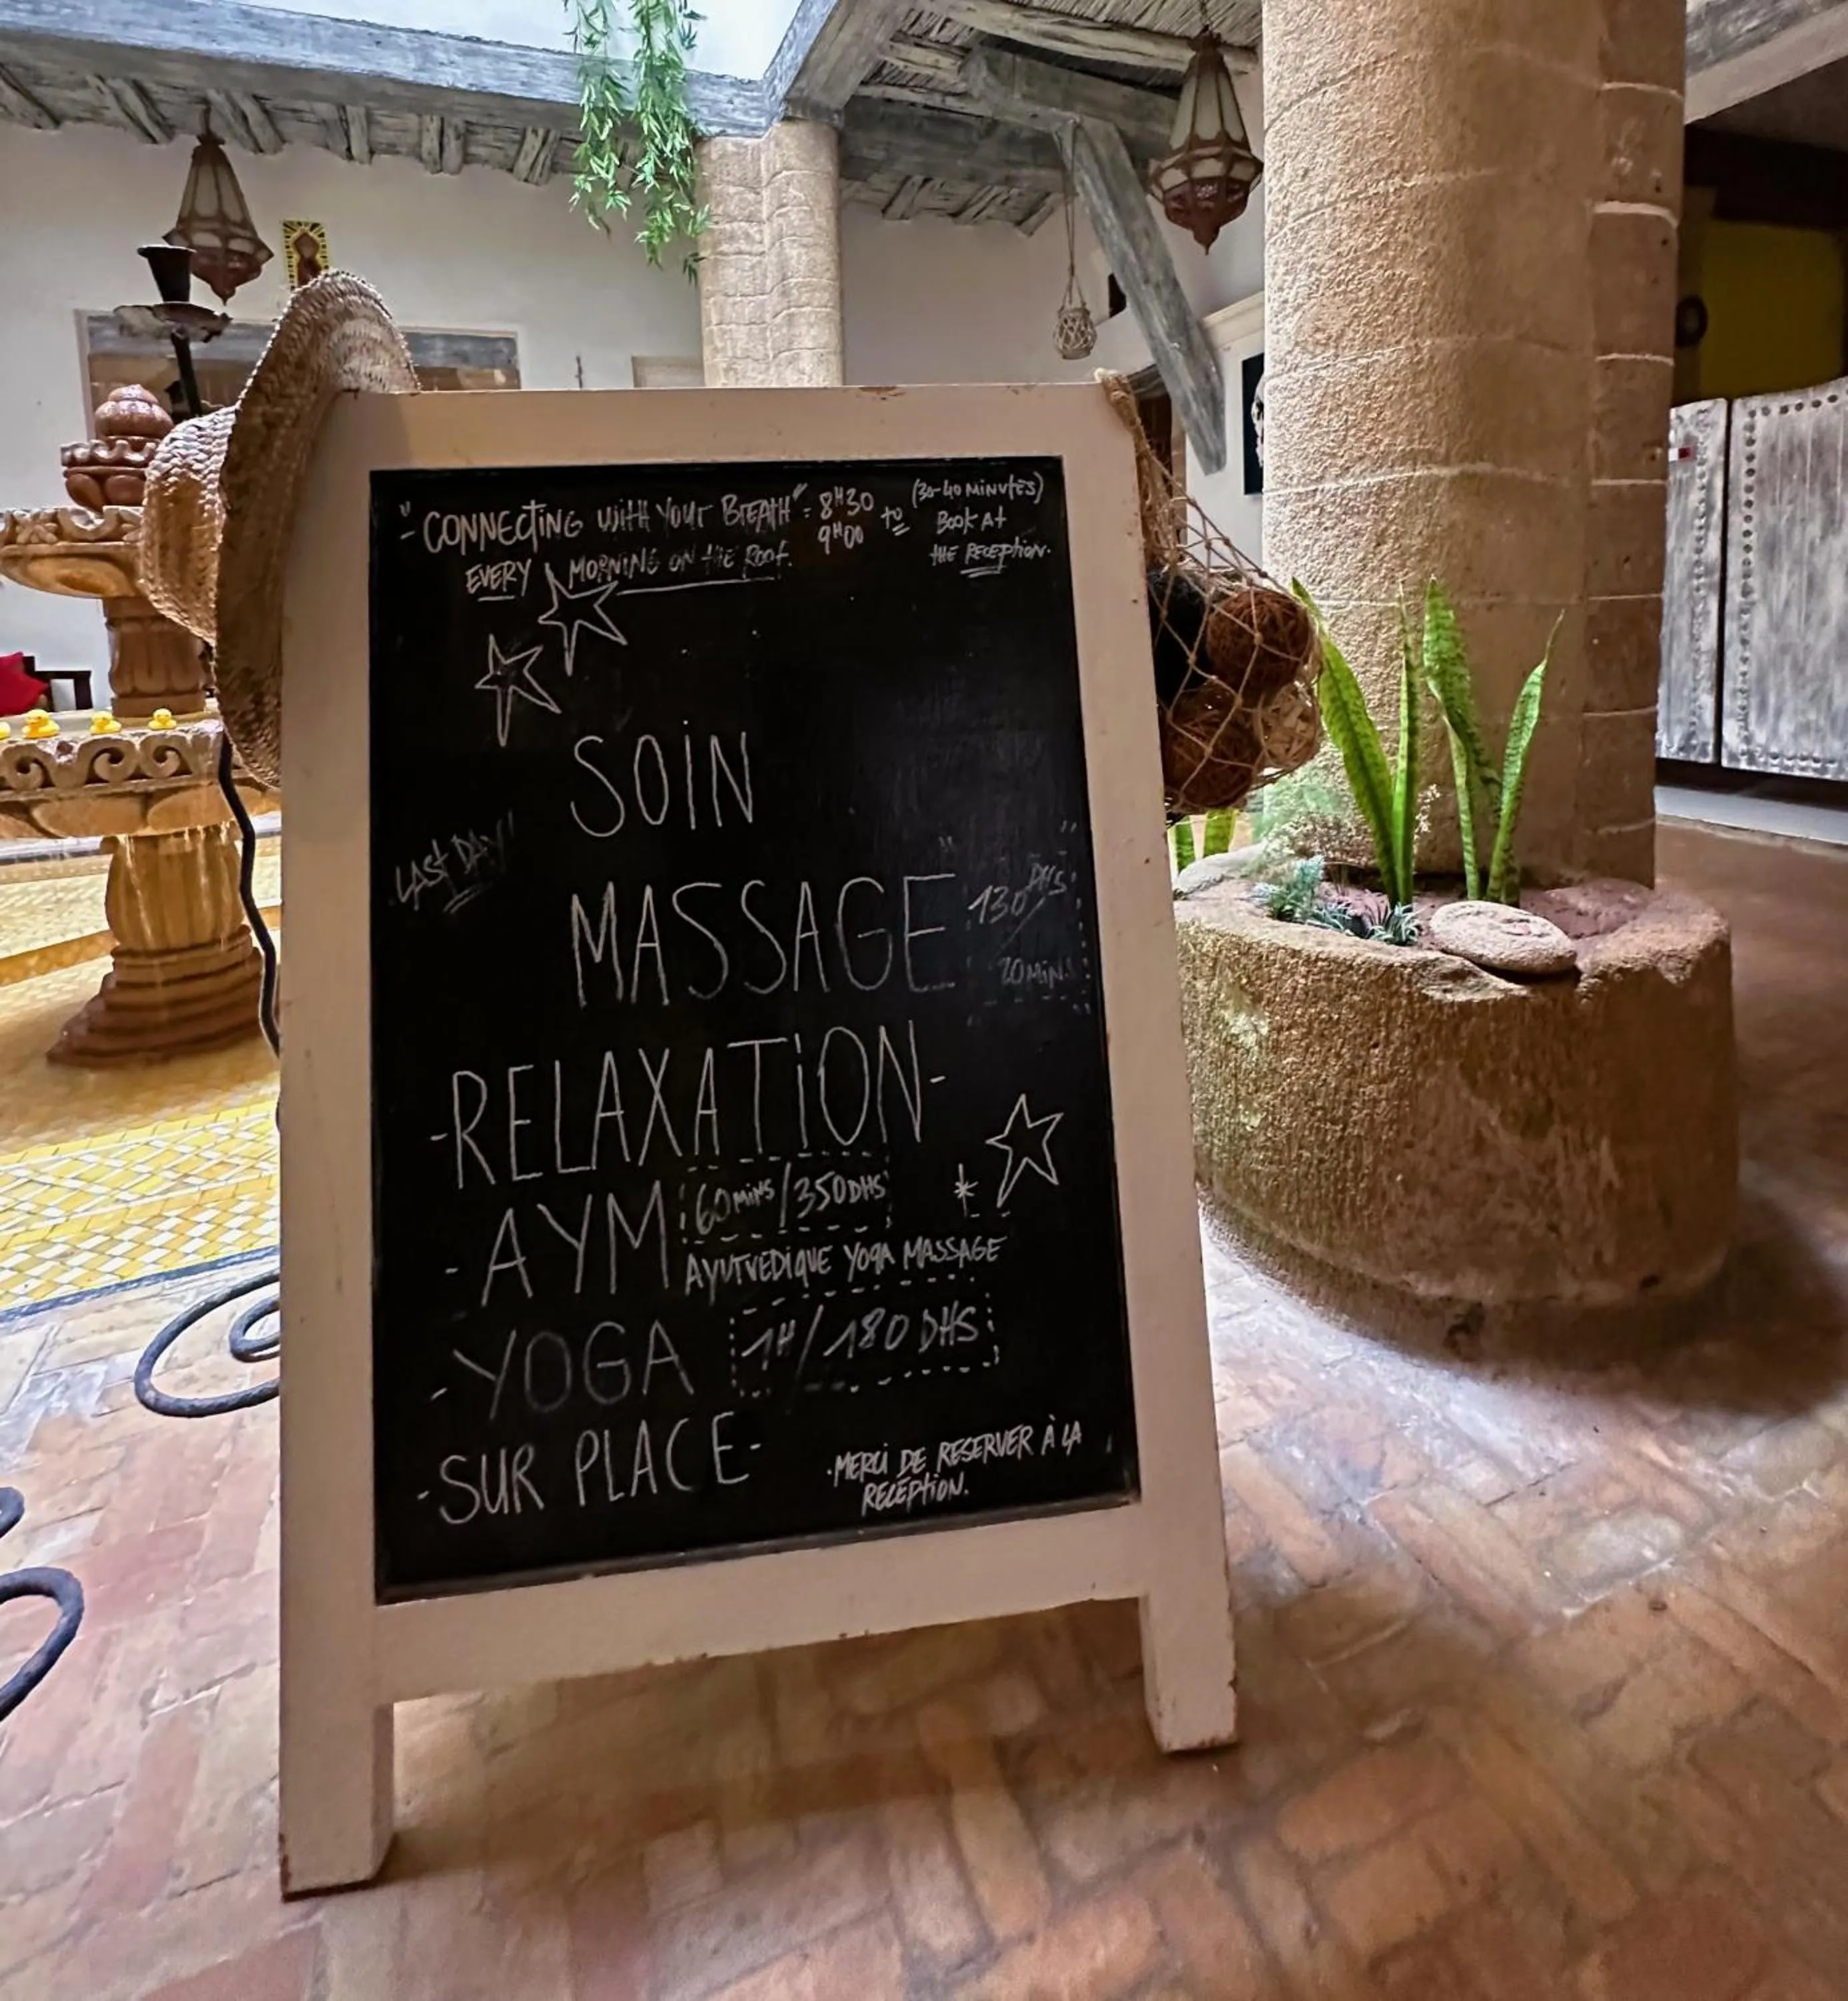 "CONNECTING WITH YOUR BREATH" = 8H30 to (30-40 MINUTES)
9H00 BOOK At
EVERY MORNING ON THE ROOF. the RECEPtioN.
SOIN
LAST DAY"
MASSAGE " 130 DHS "
20 MINS
-RELAXATION-
- AYM 60 MINS / 350 DHS *
AYURVEDIQUE YOGA MASSAGE
- YOGA 1H / 180 DHS
- SUR PLACE -
. MERCI DE RESERVER À LA
RECEPTION.